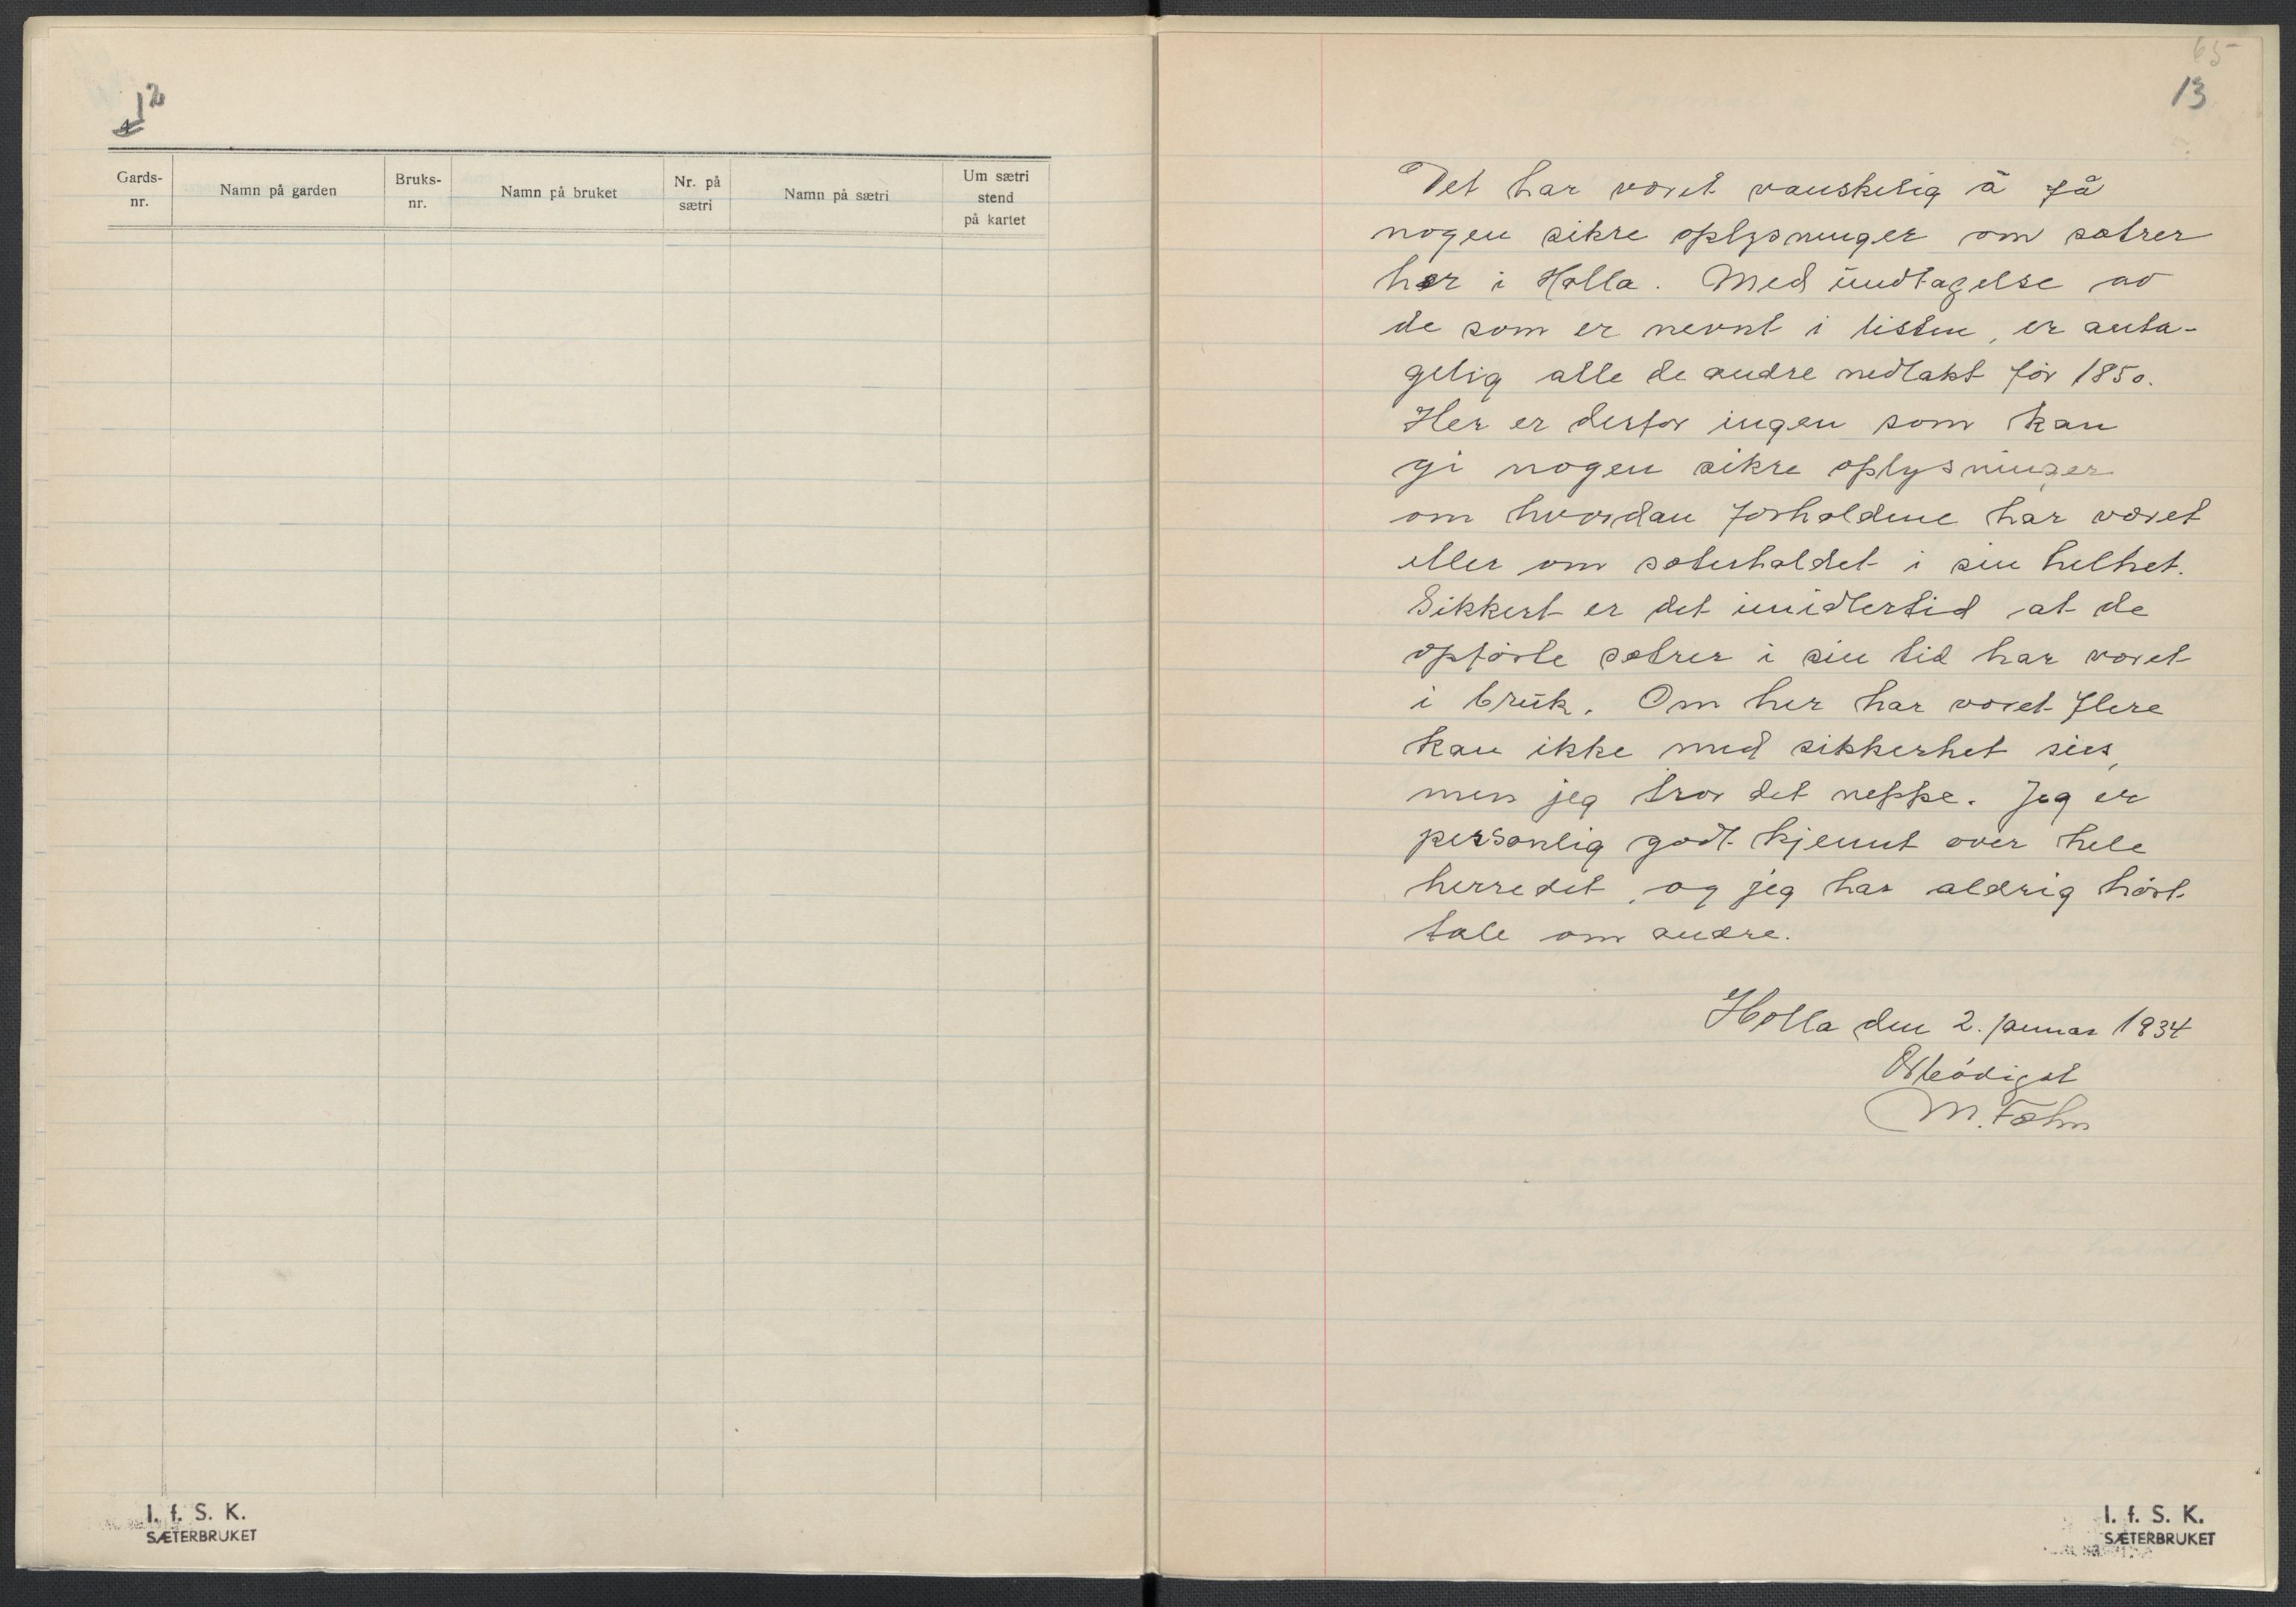 12
4
Gards-
nr.
Namn på garden
Bruks-
nr.
Namn på bruket
Nr. på
sætri
Namn på sætri
Um sætri
stend
på kartet
I. f. S. K.
SÆTERBRUKET
65
13
Det har været vanskelig å få
nogen sikre oplysninger om sætrer
her i Holla. Med undtagelse av
de som er nevnt i listen, er anta-
gelig alle de andre nedlakt før 1850.
Her er derfor ingen som kan
gi nogen sikre oplysninger
om hvordan forholdene har været
eller om sæterholdet i sin helhet.
Sikkert er det imidlertid at de
opførte sætrer i sin tid har været
i bruk. Om her har været flere
kan ikke med sikkerhet sies,
men jeg tror det neppe. Jeg er
personlig godt kjennt over hele
herredet, og jeg har aldrig hørt
tale om andre.
Holla den 2. januar 1934
Ærbødigst
M. Fæhn
I. f. S. K.
SÆTERBRUKET